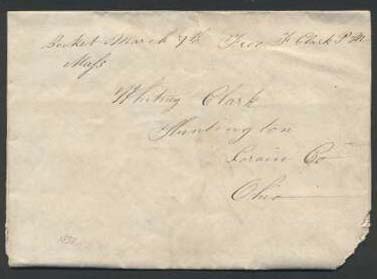 Becket March 9th Free F Clark P M
Mass
Whitney Clark
Huntington
Lorain Co
Ohio